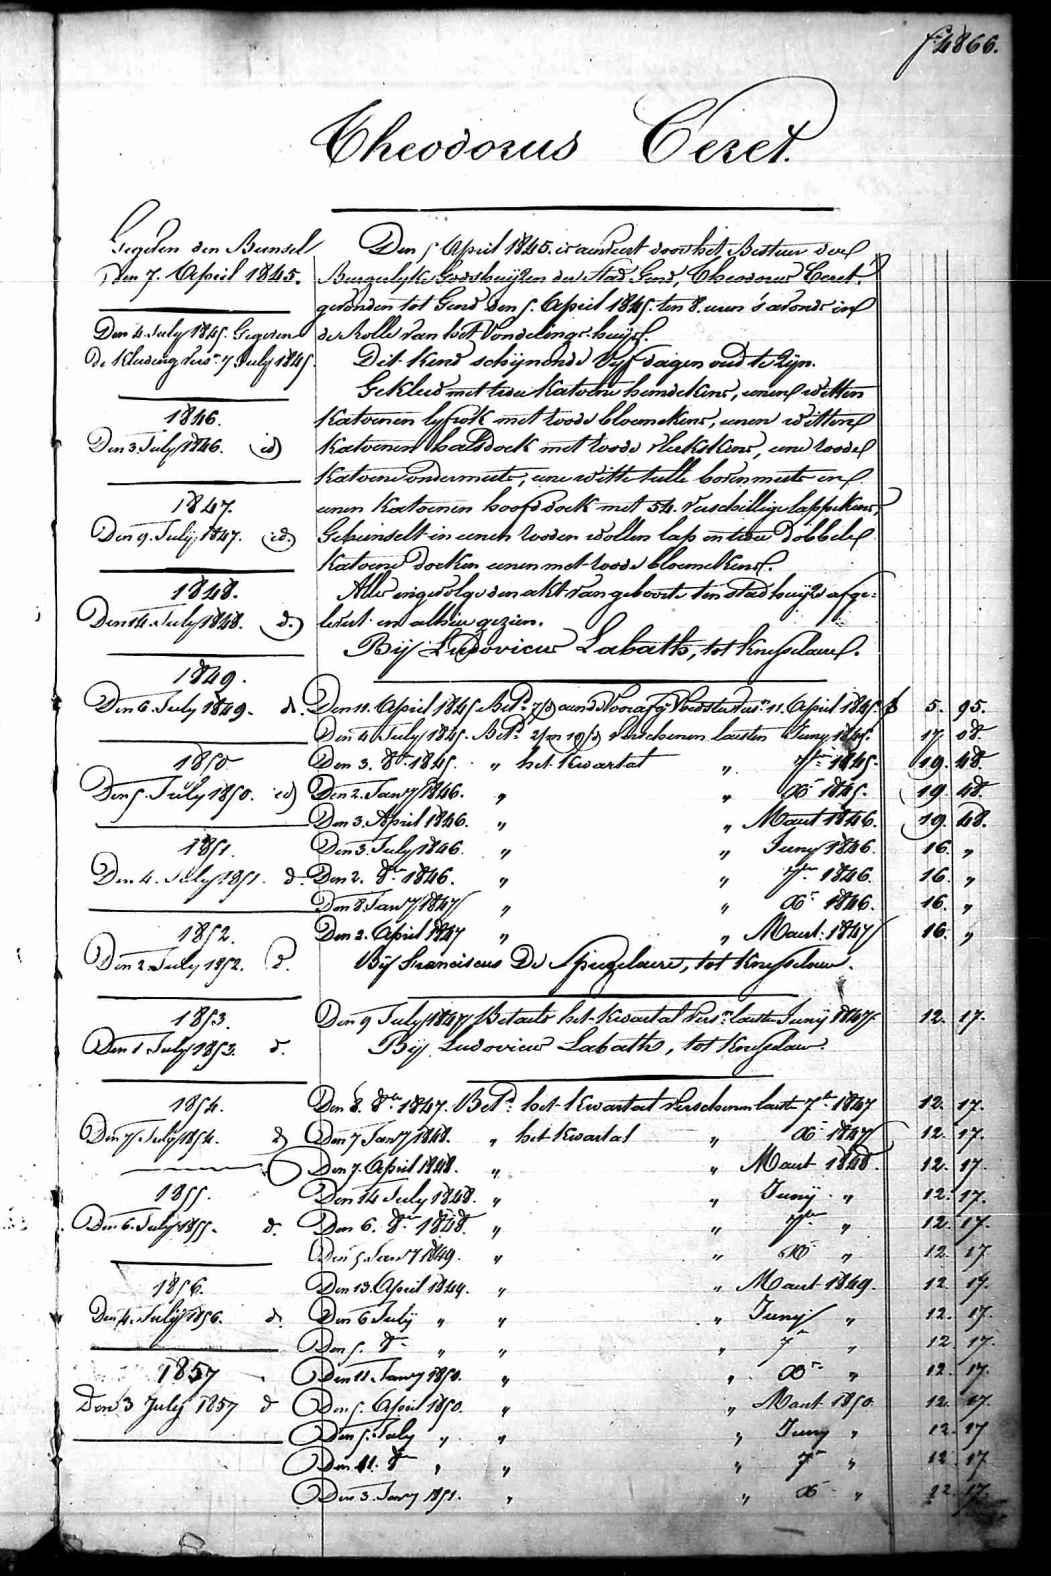 f 4866.
Theodorus Ceret.
Gegeven den Bunsel
den 7. April 1845.
Den 4. July 1845. Gegeven
de Kleeding vers.n 7 July 1845.
1846.
Den 3. July 1846. id
1847.
Den 9. July 1847. id.
1848.
Den 14. July 1848. d.
1849.
Den 6. July 1849. d.
1850
Den 5. July 1850. id
1851.
Den 4. July 1851. d.
1852.
Den 2 July 1852. d.
1853.
Den 1 July 1853. d.
1854.
Den 7 July 1854. d
1855.
Den 6. July 1855. d.
1856.
Den 4. July 1856. d.
1857
Den 3 July 1857 d
Den 5 April 1845. is aenveert door het Bestuer der
Burgerlyke Godshuijzen der Stad Gend, Theodorus Ceret.
gevonden tot Gend den 5. April 1845. ten 8. uren 's avonds in
de Rolle van het Vondelings-huys.
Dit kind schynende Vyf dagen oud te zyn.
Gekleed met twee katoene hemdekens, eenen witten
katoenen lyfrok met roode bloemekens, eenen witten
katoenen halsdoek met roode vlekskens, eene roode
katoene ondermuts, eene witte tulle bovenmuts en
eenen katoenen hoofddoek met 54. verschillige lappekens,
Gebunselt in eenen rooden wollen lap en twee dobbele
katoene doeken eenen met roode bloemekens.
Alles ingevolge den akt van geboorte ten stadhuyze afge=
levert en alhier gezien.
Bij Ludovicus Labath, tot Knesselaere.
Den 11. April 1845 Bet.d aen de Voorafg. 11. April 1845 f 5. 95.
Den 4 July 1845. Bet.d verschenen laesten Juny 1845. 17. 08.
Den 3. 8.br 1845. " het Kwartal " 7.bre 1845. 19. 48.
Den 2. Janry 1846. " " Xbr 1845. 19. 48.
Den 3. April 1846. " " Maert 1846. 19. 48.
Den 3. July 1846. " " Juny 1846. 16. "
Den 2. 8.br 1846. " " 7.bre 1846. 16. "
Den 8. Janry 1847 " " Xbr 1846. 16. "
Den 2. April 1847 " " Maert 1847 16. "
Bij Franciscus De Spiegelaere, tot Knesselaere.
Den 9 July 1847 Betaelt het Kwartal vers.n laesten Juny 1847. 12. 17.
Bij Ludovicus Labath, tot Knesselaere.
Den 8. 8.br 1847. Bet.d het Kwartal verschenen laesten 7.br 1847 12. 17.
Den 7 Janry 1848. " het Kwartal " Xbr 1847 12. 17.
Den 7. April 1848. " " Maert 1848. 12. 17.
Den 14 July 1848. " " Juny " 12. 17.
Den 6. 8.br 1848. " " 7.bre " 12. 17.
Den 5 Janry 1849. " " Xbr " 12. 17
Den 13. April 1849. " " Maert 1849. 12. 17.
Den 6 July " " " Juny " 12. 17.
Den 5. 8.br " " " 7.br " 12 17.
Den 11 Janry 1850. " " Xbr " 12. 17.
Den 5. April 1850. " " Maert 1850. 12. 17.
Den 5. July " " " Juny " 12. 17
Den 11. 8.br " " " 7.br " 12. 17
Den 3. Janry 1851. " " Xbr " 12. 17.